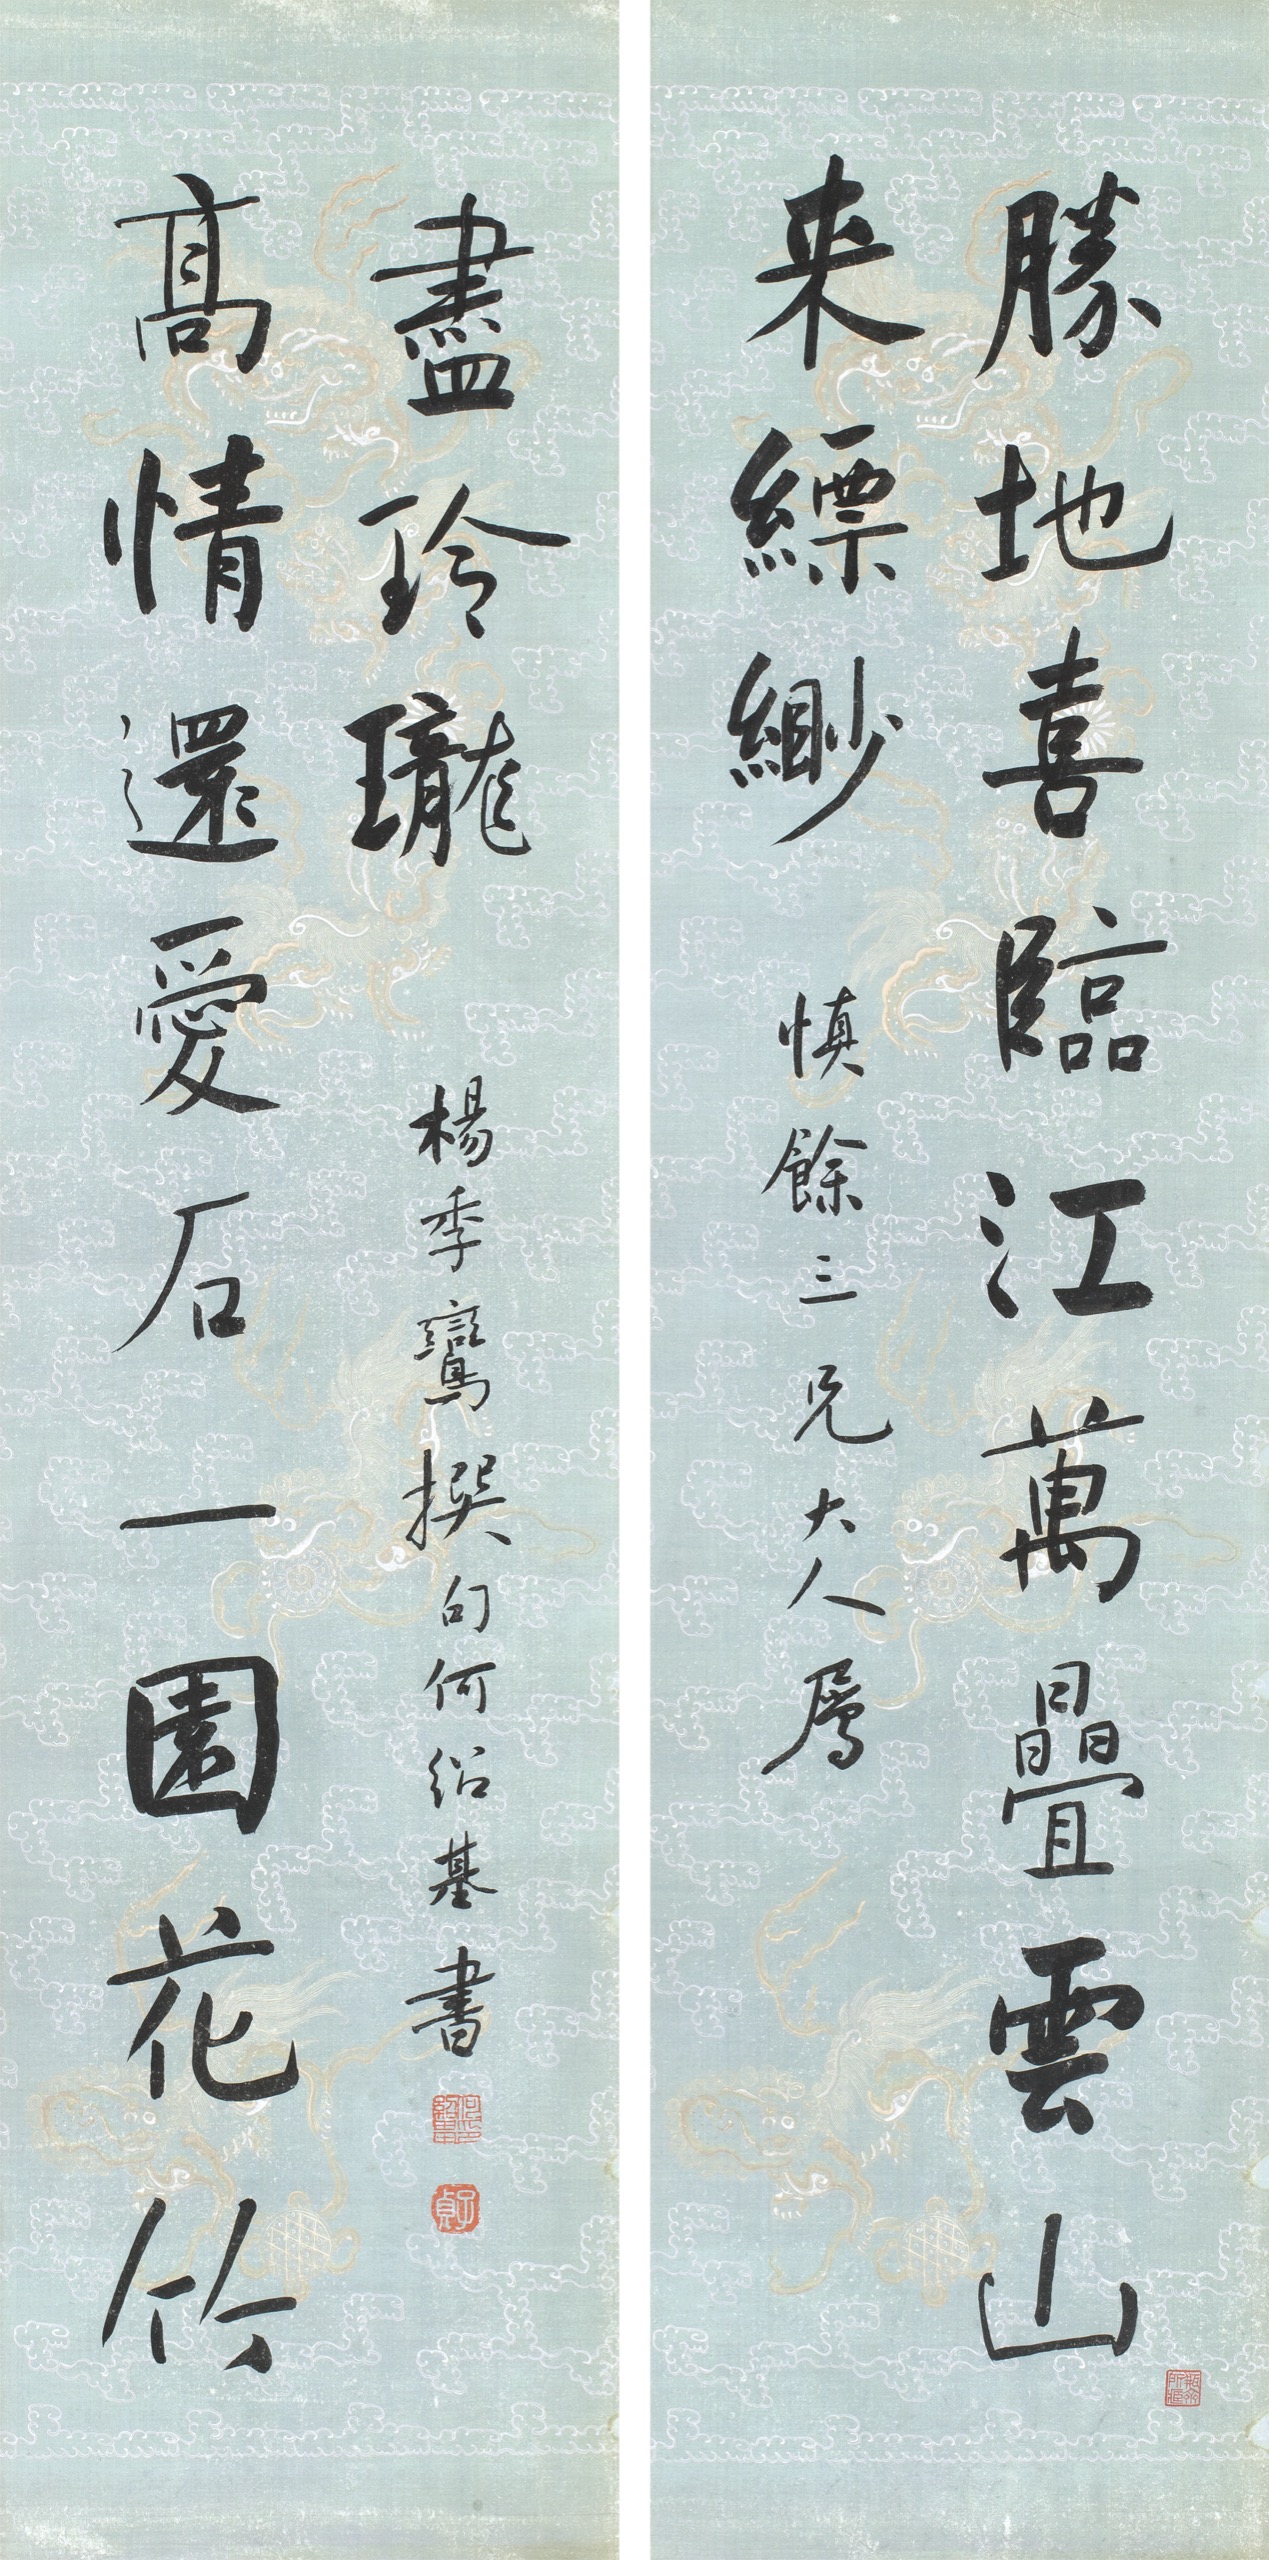 勝地喜臨江萬疊雲山
来縹緲
慎餘三兄大人屬
高情還愛石一園花竹
盡玲瓏
楊季鸞撰句何紹基書
何紹基印
子貞